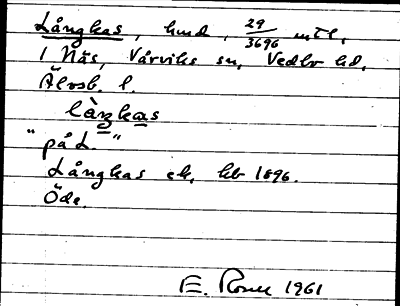 Långkas, hmd, 29/3696 mtl,
1 Näs, Vårviks sn, Vedbo hd,
Älvsb. l.
låŋkas
"på L."
Långkas ek, kb 1896.
Öde.
E. 1961